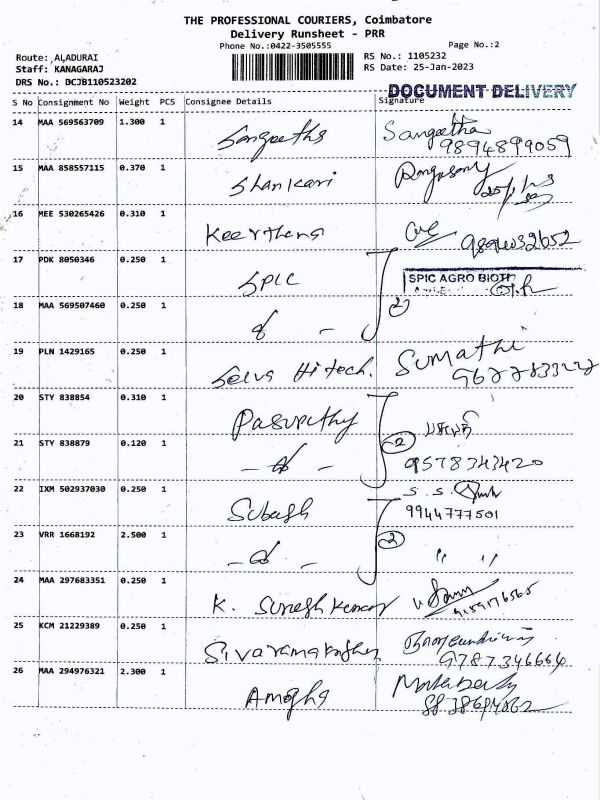 THE PROFESSIONAL COURIERS, Coimbatore
Delivery Runsheet - PRR
Phone No.:0422-3505555 Page No.:2
Route: ALADURAI RS No.: 1105232
Staff: KANAGARAJ RS Date: 25-Jan-2023
DRS No.: DCJB110523202
DOCUMENT DELIVERY
S No Consignment No Weight PCS Consignee Details Signature
14 MAA 569563709 1.300 1 Sangeetha Sangeetha
9894899059
15 MAA 858557115 0.370 1 Shankari
16 MEE 530265426 0.310 1 Keerthana
17 PDK 8050346 0.250 1 SPIC SPIC AGRO BIOTH
2
18 MAA 569507460 0.250 1
19 PLN 1429165 0.250 1 Selva Hitech. Sumathi
20 STY 838854 0.310 1 Pasupathy
2
21 STY 838879 0.120 1 9578343420
22 IXM 502937030 0.250 1 Subash S. S.
9944777501
23 VRR 1668192 2.500 1 2 " "
24 MAA 297683351 0.250 1 K. Suresh Kumar
9159176565
25 KCM 21229389 0.250 1
9787346664
26 MAA 294976321 2.300 1 Amogha